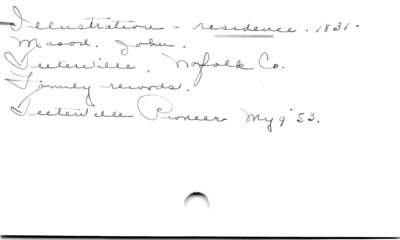 Illustration - residence. 1831.
Masod. John.
Teeterville, Norfolk Co.
Family records.
Teeterville Pioneer My 9 '53.